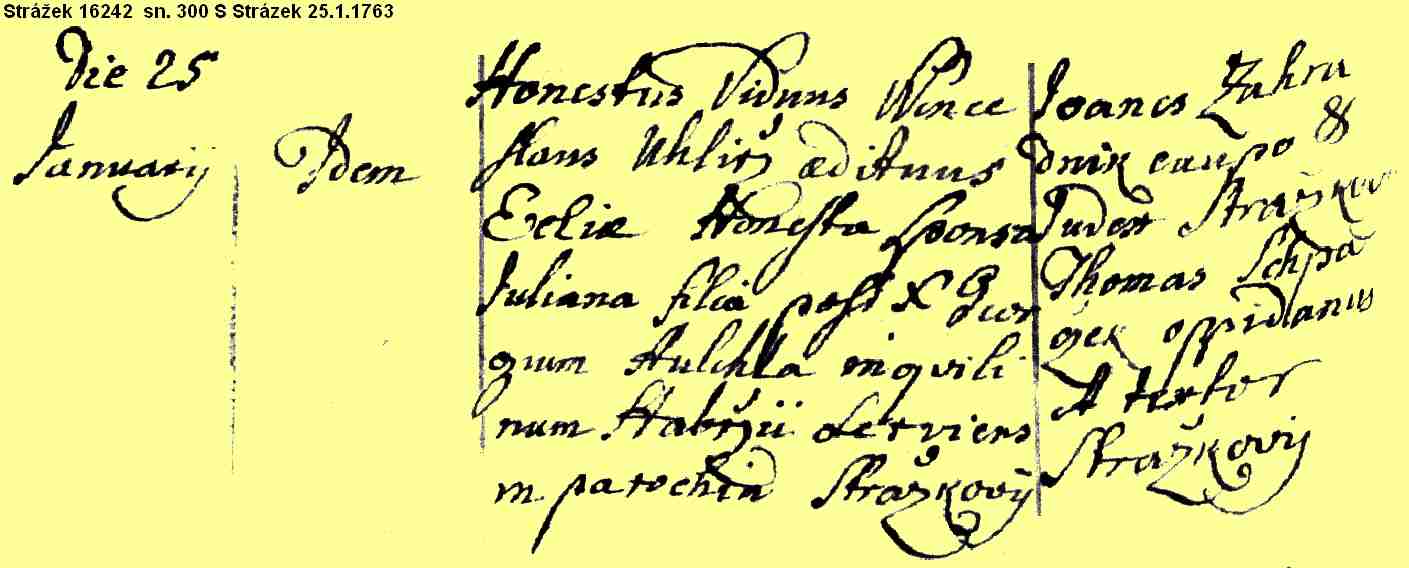 Strážek 16242 sn. 300 S Strázek 25.1.1763
Die 25
Januarij
Idem
Honestus Viduus Wence
slaus Uhlirz ædituus
Ecliæ Honesta Sponsa
Juliana filia post X Geor
gium inqvili
num serviens
in parochia Stražkovij
Joanes Zahra
dnik caupo &
Judex Stražkov
Thomas Schpa
czek oppidanus
& textor
Stražkovij